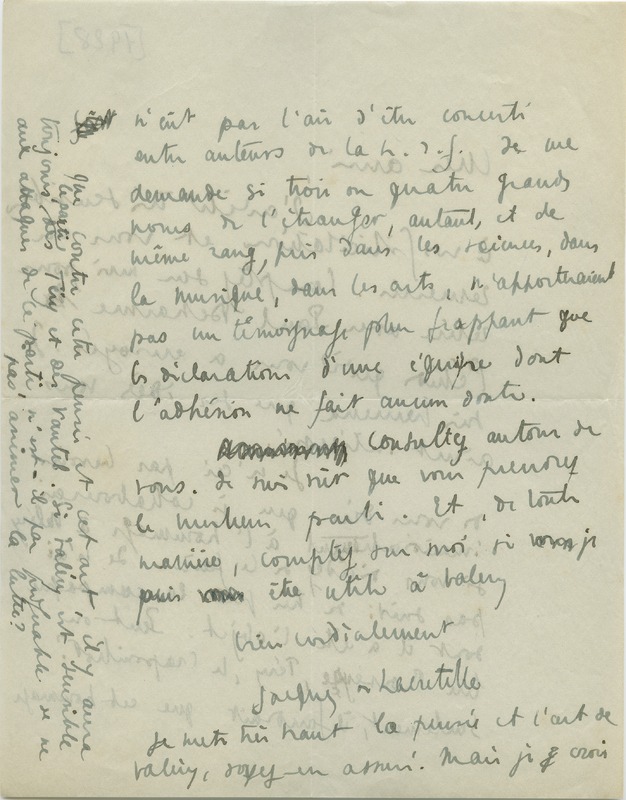 n'eût pas l'air d'être concerté
entre auteurs de la N. r. f. Je me
demande si trois ou quatre grands
noms de l'étranger, autant, et de
même rang, pris dans les sciences, dans
la musique, dans les arts, n'apporteraient
pas un témoignage plus frappant que
les déclarations d'une équipe dont
l'adhésion ne fait aucun doute.
Consultez autour de
vous. Je suis sûr que vous prendrez
le meilleur parti. Et, de toute
manière, comptez sur moi si je
puis être utile à Valéry
bien cordialement
Jacques de Lacretelle
Je mets très haut la pensée et l'art de
Valéry, soyez-en assuré. Mais je crois
que contre cette pensée et cet art il y aura
toujours des Téry et des Vautel. Si Valéry est sensible
aux attaques de ce parti, n'est-il pas préférable de ne
pas animer la lutte?